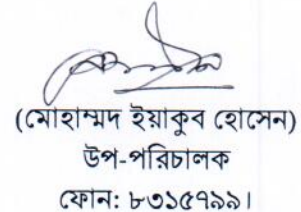 (মোহাম্মদ ইয়াকুব হোসেন)
উপ-পরিচালক
ফোন: ৮৩১৫৭৯৯।